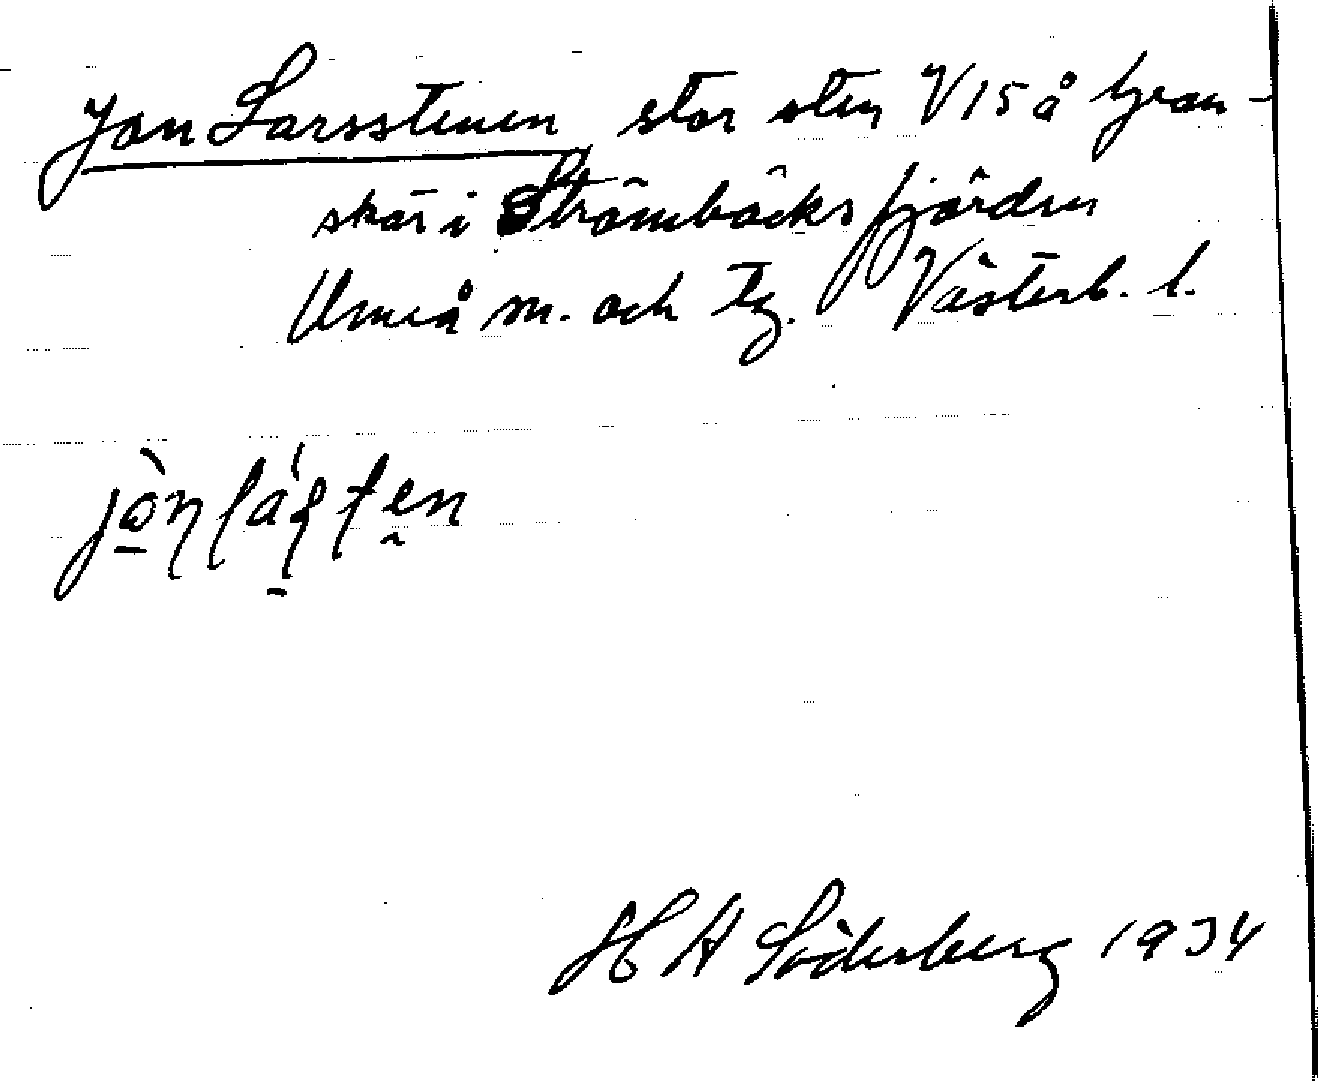 Jon Larsstenen stor sten V15 å Gran-
skär i Strömbäcksfjärden
Umeå sn. och tg. Västerb. l.
H A Söderberg 1934